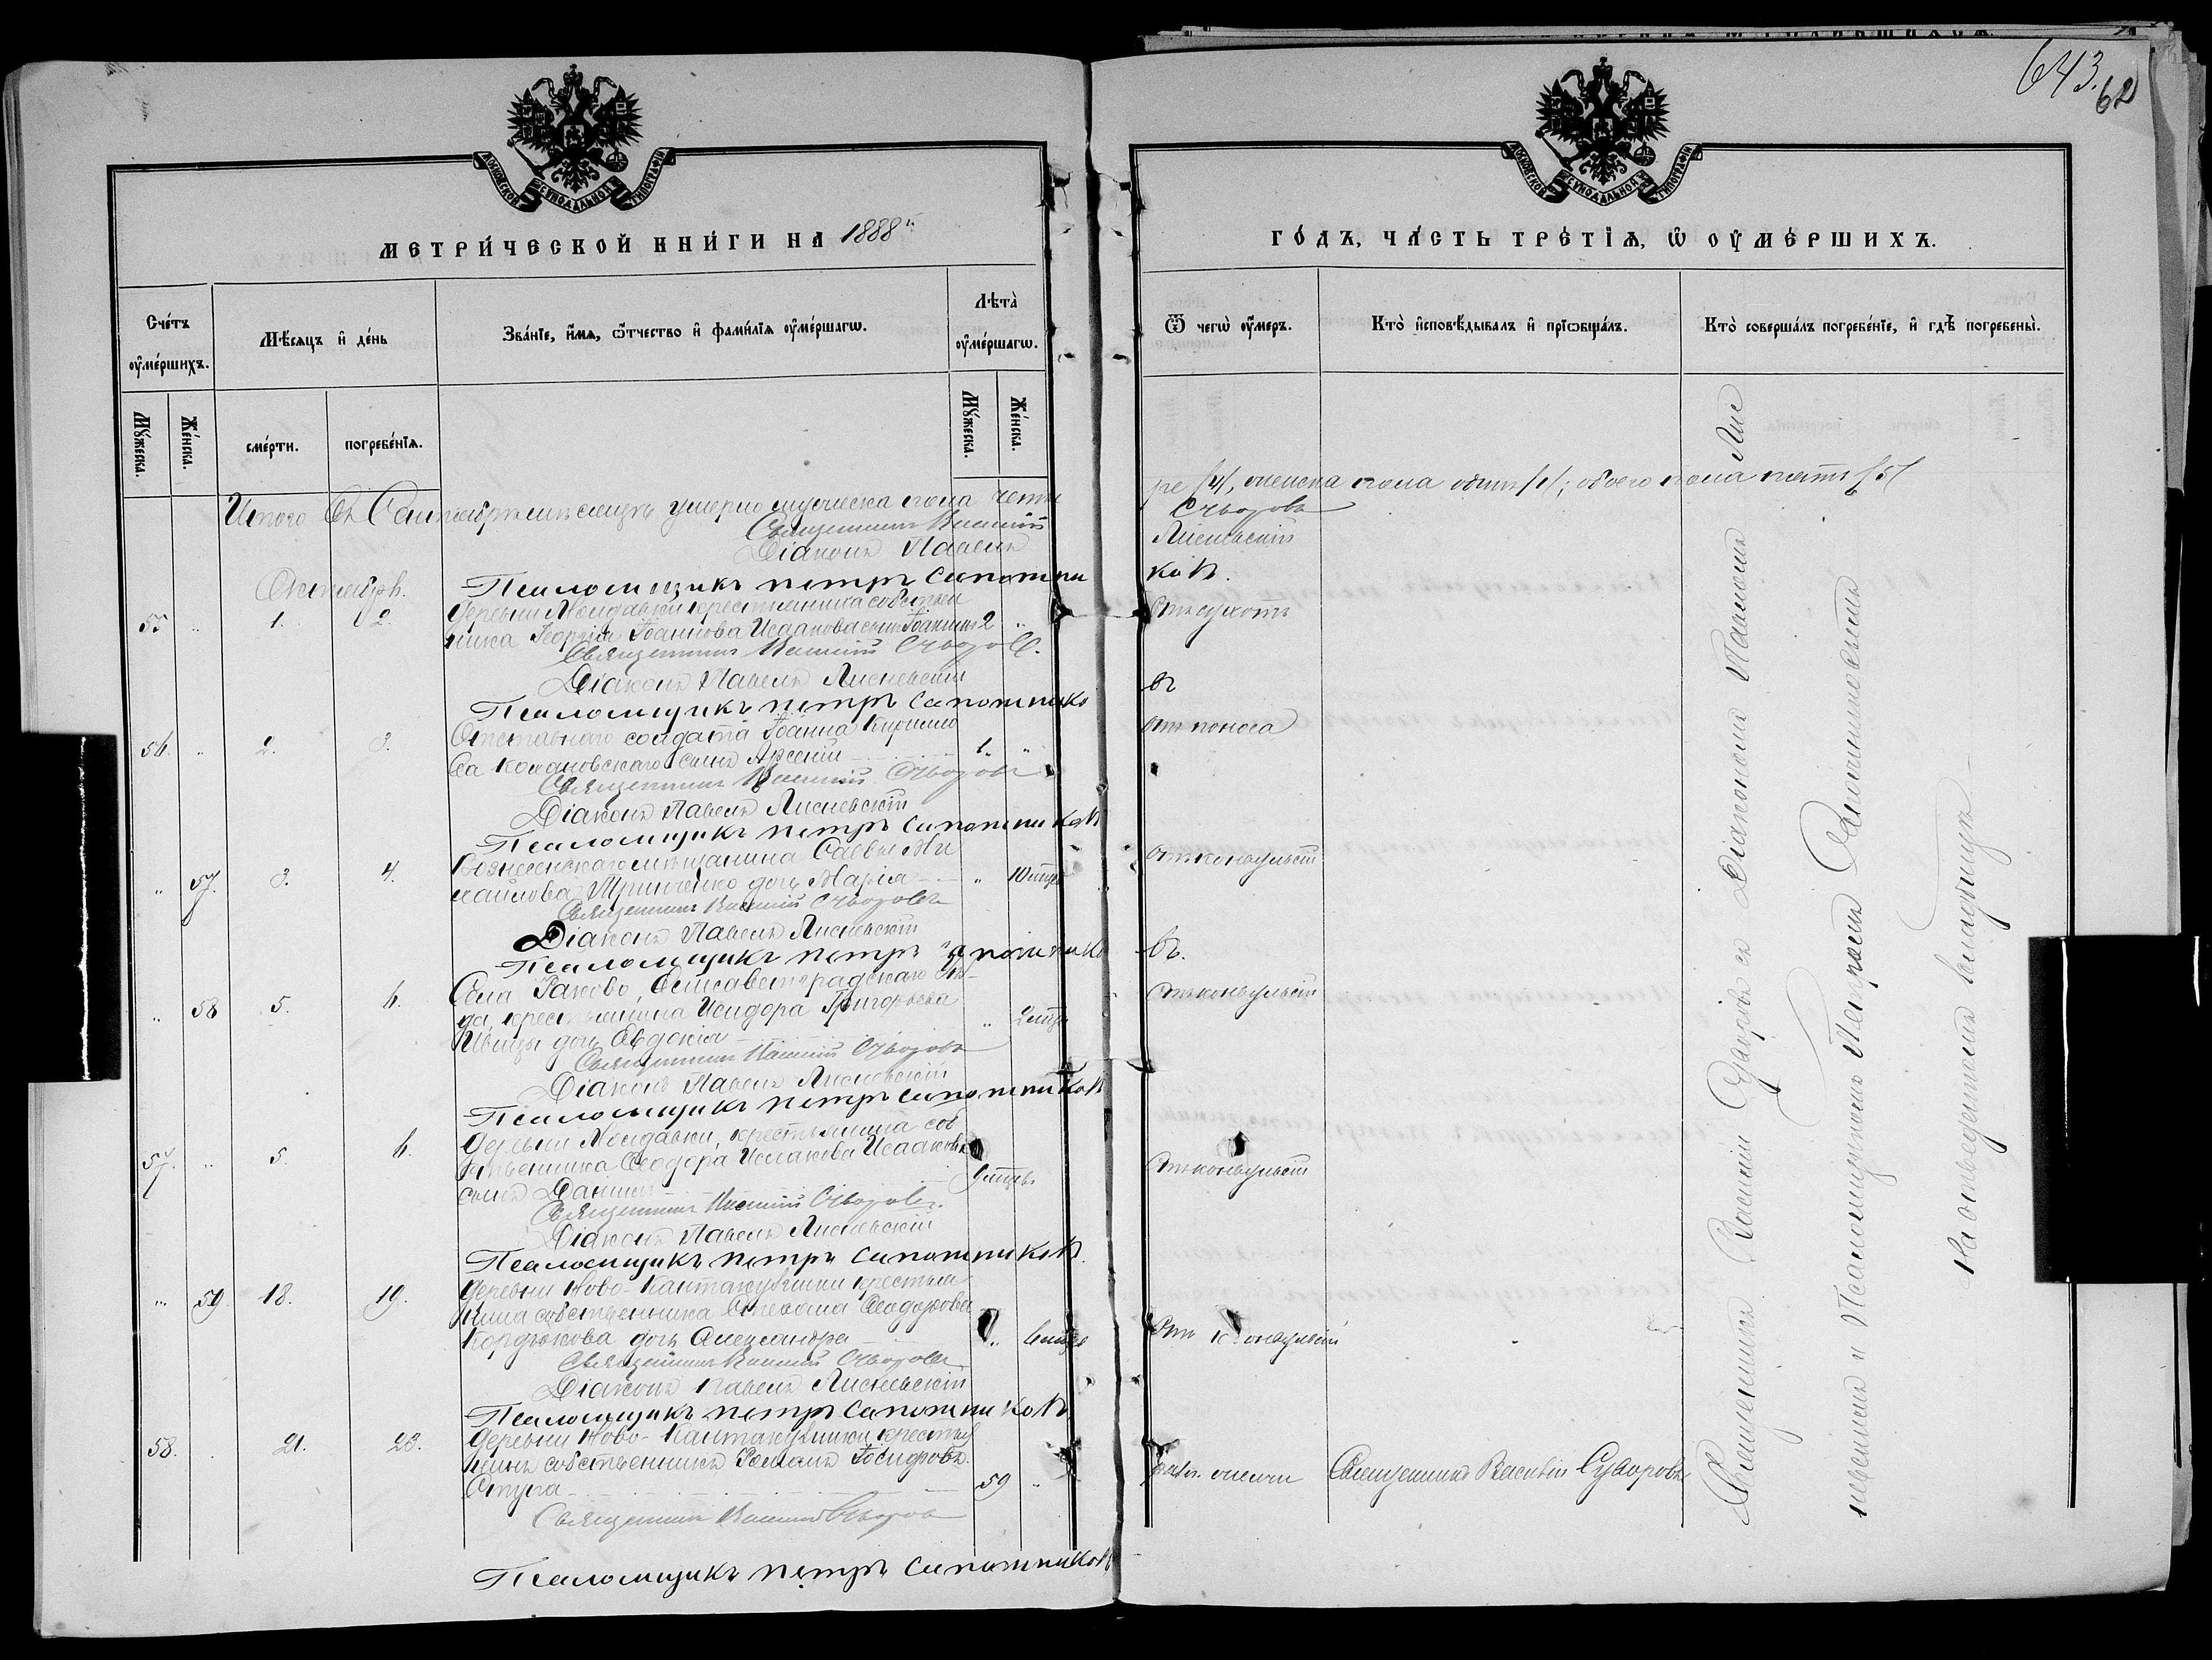 643.
62
МОСКОВСКОЙ СѴНОДАЛЬНОЙ ТИПОГРАФІИ
МОСКОВСКОЙ СѴНОДАЛЬНОЙ ТИПОГРАФІИ
МЕТРИ́ЧЕСКОЙ КНИ́ГИ НА 1888й
ГО́ДЪ, ЧА́СТЬ ТРЕ́ТІѦ, Ѡ ОУ҆МЕ́РШИХЪ.
Сче́тъ оу҆ме́ршихъ.
Мѣ́сѧцъ и҆ де́нь
Зва́нїе, и҆́мѧ, ѻ҆́тчество и҆ фами́лїѧ оу҆ме́ршагѡ.
Лѣ́та̀ оу҆ме́ршагѡ.
Ѿ чегѡ̀ оу҆́меръ.
Кто̀ и҆сповѣ́дывалъ и҆ прїѡбща́лъ.
Кто̀ соверша́лъ погребе́нїе, и҆ гдѣ̀ погребены̀.
Мꙋ́жеска.
Же́нска.
сме́рти.
погребе́нїѧ.
Мꙋ́жеска.
Же́нска.
Итого въ Сентябрѣ мѣсяцѣ умерло мужеска пола четы
ре /4/, женска пола одинъ /1/; обоего пола пять /5/
Священникъ Василій Суворовъ
Діаконъ Павелъ Лисневскій
Псаломщикъ Петръ Сапожниковъ.
Октябрь.
55 " 1. 2. Деревни Молдавки крестьянина собствен
ника Георгія Іоаннова Исакова сынъ Іоаннъ 2 " Отъ сухотъ
Священникъ Василій Суворовъ.
Діаконъ Павелъ Лисневскій
Псаломщикъ Петръ Сапожниковъ
56. " 2. 3. Отставнаго солдата Іоанна Кирилло
ва сынъ Арсеній 1. " Отъ поноса
Священникъ Василій Суворовъ
Діаконъ Павелъ Лисневскій
Псаломщикъ Петръ Сапожниковъ
" 57. 3. 4. Вознесенскаго мѣщанина Саввы Ми
хайлова дочь Марія " 10 мцев Отъ конвульсій
Священникъ Василій Суворовъ
Діаконъ Павелъ Лисневскій
Псаломщикъ Петръ Сапожниковъ.
" 58 5. 6. Села Раково, Елисаветградскаго уѣз
да, крестьянина Исидора Григорьева
дочь Евдокія " 2 мцв Отъ конвульсій
Священникъ Василій Суворовъ
Діаконъ Павелъ Лисневскій
Псаломщикъ Петръ Сапожниковъ
57. " 5. 6. Деревни Молдавки, крестьянина соб
ственника Ѳеодора Исаакова
сынъ Даніилъ 9 мцевъ Отъ конвульсій
Священникъ Василій Суворовъ.
Діаконъ Павелъ Лисневскій
Псаломщикъ Петръ Сапожниковъ.
" 59 18. 19. Деревни Ново-Кантакузинки крестья
нина собственника Стефана Ѳеодорова
Кордюкова дочь Александра " 6 мцев Отъ конвульсій
Священникъ Василій Суворовъ
Діаконъ Павелъ Лисневскій
Псаломщикъ Петръ Сапожниковъ
58. . 21. 23. Деревни Ново-Кантакузинки крестья
нинъ собственникъ Романъ Іосифовъ
59 " Священникъ Василій Суворовъ
Священникъ Василій Суворовъ
Псаломщикъ Петръ Сапожниковъ
Священникъ Василій Суворовъ съ Діакономъ Павломъ Лис
невскимъ и Псаломщикомъ Петромъ Сапожниковымъ
На отведенномъ кладбищѣ